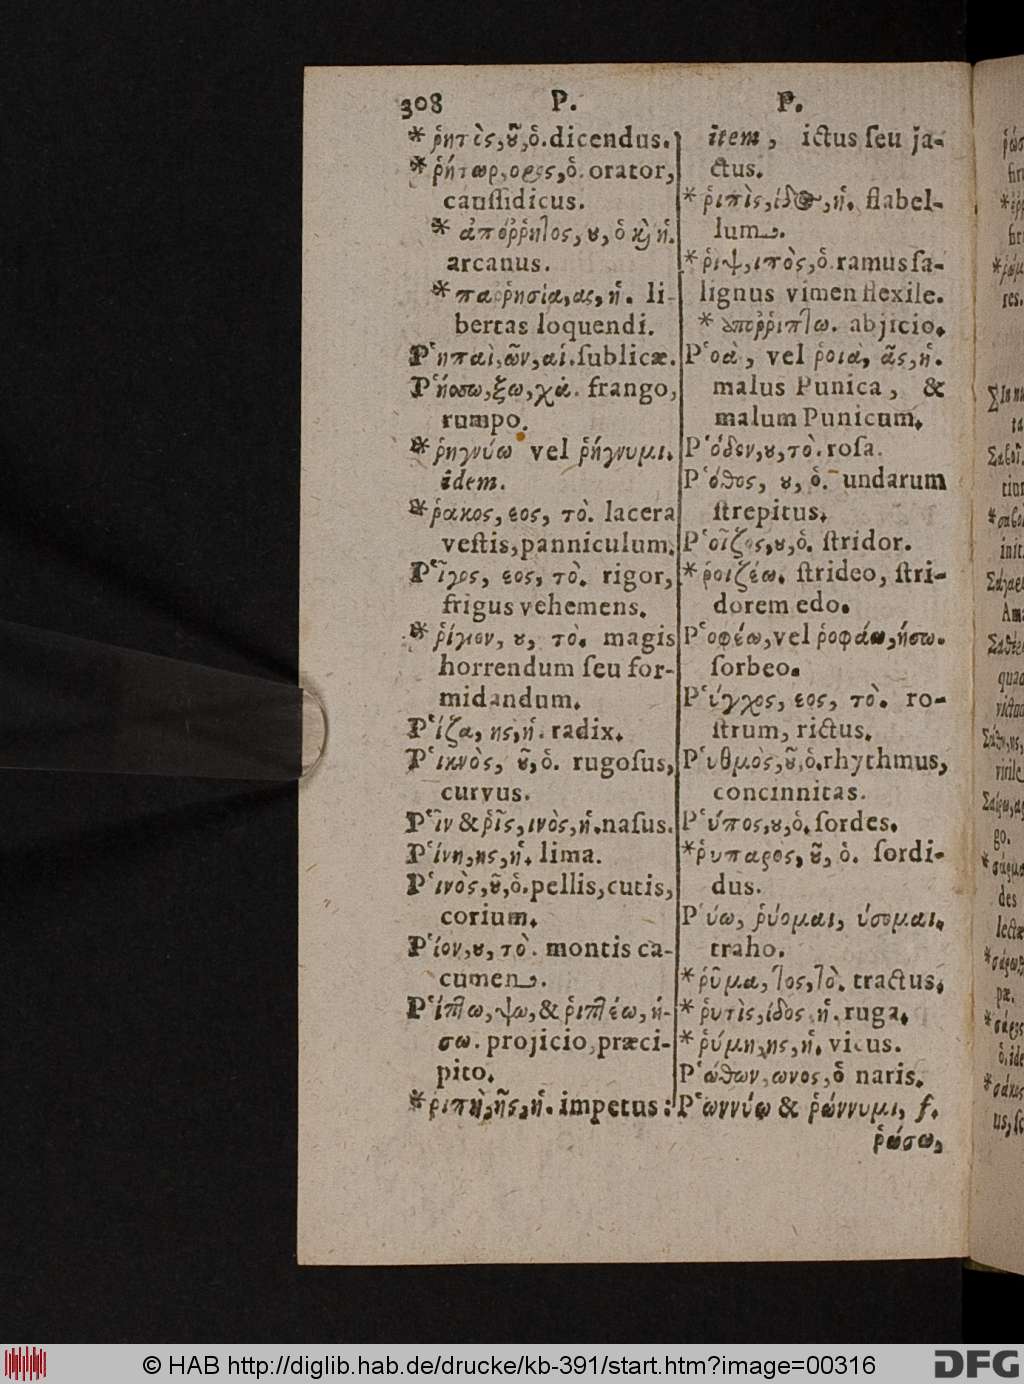 308 P. P.
* ῥητὸς, ȣ͂, ὁ. dicendus.
* ῥήτωρ, ορος, ὁ. orator,
caussidicus.
* ἀπόῤῥητος, ȣ, ὁ κὶ ἡ.
arcanus.
* παῤῥησία, ας, ἡ. li-
bertas loquendi.
Ρ῾ηπαὶ, ῶν, αἱ. sublicæ.
Ρ῾ήσσω, ξω, χα. frango,
rumpo.
* ῥηγνύω vel ῥήγνυμι.
idem.
* ῥακος, εος, τὸ. lacera
vestis, panniculum.
Ρ῾ῖγος, εος, τὸ. rigor,
frigus vehemens.
* ῥίγιον, ȣ, τὸ. magis
horrendum seu for-
midandum.
Ρ῾ίζα, ης, ἡ. radix.
Ρ῾ικνὸς, ȣ͂, ὁ. rugosus,
curvus.
Ρ῾ὶν & ῥῖς, ινὸς, ἡ. nasus.
Ρ῾ίνη, ης, ἡ. lima.
Ρ῾ινὸς, ȣ͂, ὁ. pellis, cutis,
corium.
Ρ῾ίον, ȣ, τὸ. montis ca-
cumen.
Ρ῾ίπτω, ψω, & ῥιπτέω, ή-
σω. projicio, præci-
pito.
* ῥιπὴ, ῆς, ἡ. impetus:
item, ictus seu ja-
ctus.
* ῥιπὶς, ίδος, ἡ. flabel-
lum.
* ῥιψ, ιπὸς, ὁ. ramus sa-
lignus vimen flexile.
* ἀποῤῥίπτω. abjicio.
Ρ῾οὰ, vel ῥοιὰ, ᾶς, ἡ.
malus Punica, &
malum Punicum.
Ρ῾όδον, ȣ, τὸ. rosa.
Ρ῾όθος, ȣ, ὁ. undarum
strepitus.
Ρ῾οῖζος, ȣ, ὁ. stridor.
* ῥοιζέω. strideo, stri-
dorem edo.
Ρ῾οφέω, vel ῥοφάω, ήσω.
sorbeo.
Ρ῾ύγχος, εος, τὸ. ro-
strum, rictus.
Ρ῾υθμὸς, ȣ͂, ὁ. rhythmus,
concinnitas.
Ρ῾ύπος, ȣ, ὁ. sordes.
* ῥυπαρος, ȣ͂, ὁ. sordi-
dus.
Ρ῾ύω, ῥύομαι, ύσομαι.
traho.
* ῥῦμα, τος, τὸ. tractus.
* ῥυτὶς, ίδος ἡ. ruga.
* ῥύμη, ης, ἡ. vicus.
Ρ῾ώθων, ωνος, ὁ naris.
Ρ῾ωννύω & ῥώννυμι, f.
ῥώσω,
© HAB http://diglib.hab.de/drucke/kb-391/start.htm?image=00316
DFG